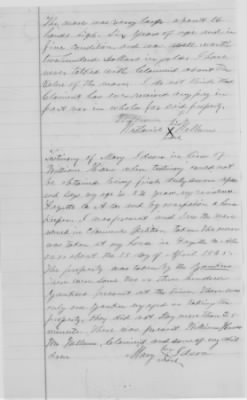 The mare was very large about 16
hands high. Six years of age and in
fine condition and was well worth
two hundred dollars in gold. I have
never talked with Claimant about the
value of the mare. I do not think that
Claimant has ever received any pay in
part was in whole for said property.
his
X
mark
Testimony of Mary Edson in lieu of
William Haws when testimony could not
be obtained being first duly sworn depo
and says my age is 54 years, my residence
Fayette Co A la and by occupation a house
keeper. I was present and saw the mare
named in Claimants Petition Taken. The mare
was taken at my house in Fayette Co Ala
on or about the 15 day of April 1865.
The property was taken by the Yankees
There were some two or three hundred
Yankees present at the time. There was
only one Yankee engaged in taking the
property. They did not stay more than 2
minutes. There was present William Haws
Wm Williams, Claimant and some of my chil
dren
Mary X Edson
mark